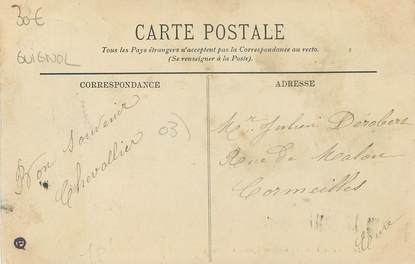 30€
GUIGNOL
CARTE POSTALE
Tous les Pays étrangers n'acceptent pas la Correspondance au recto.
(Se renseigner à la Poste).
CORRESPONDANCE
ADRESSE
Bon souvenir
Chevallier
03)
Mr. Julien Derobert
Rue de Malou
Cormeilles
Eure